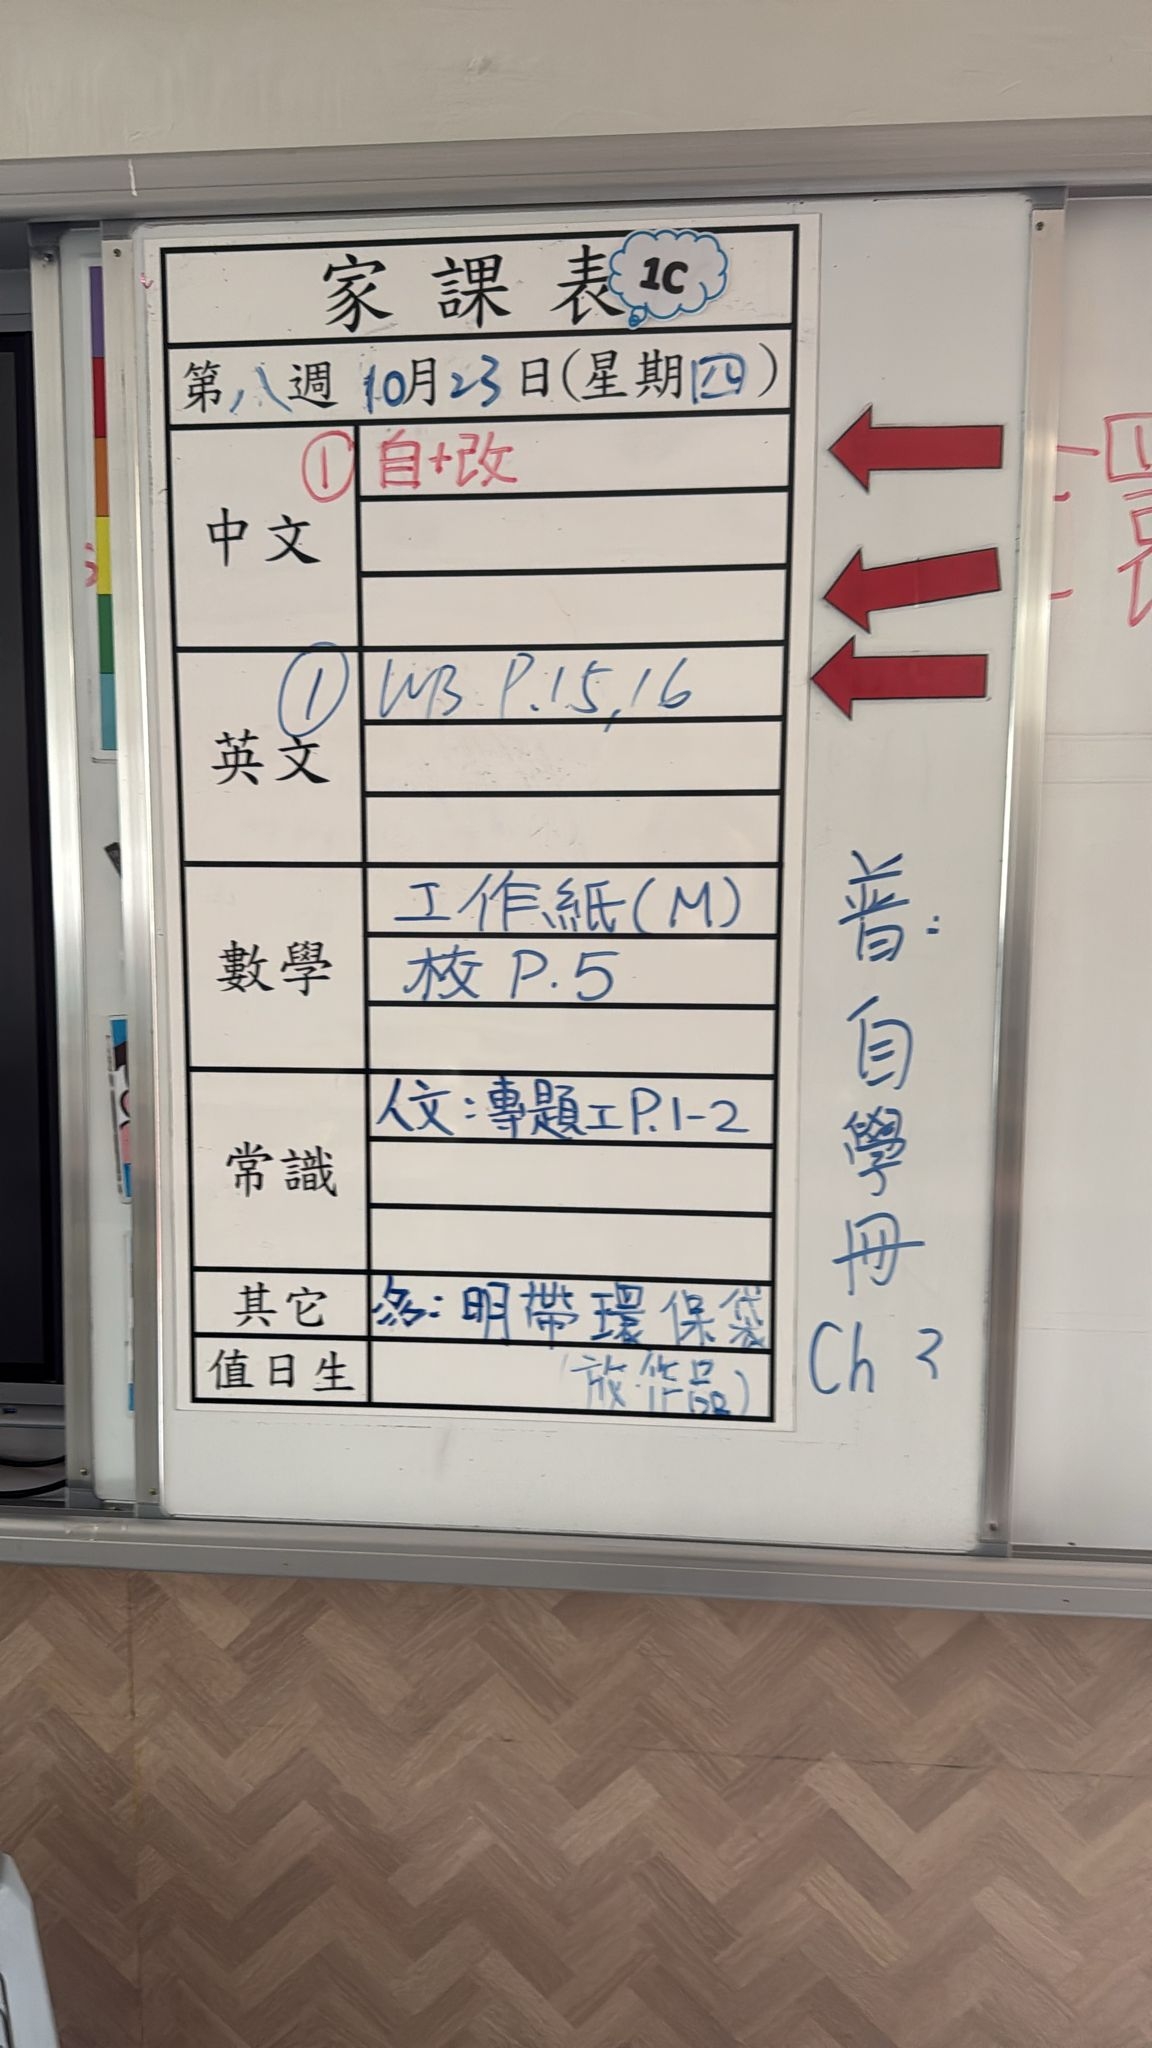 家課表 1C
第八週 10月23日(星期四)
中文
① 自+改
英文
① WB P.15,16
數學
工作紙(M)
校 P.5
常識
人文:專題工P.1-2
其它
明帶環保袋
(放作品)
值日生
普:
自
學
冊
Ch 3